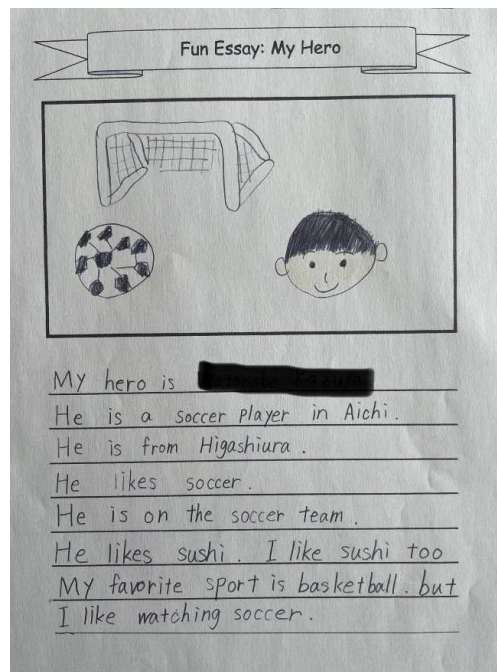 Fun Essay: My Hero
My hero is
He is a soccer player in Aichi.
He is from Higashiura.
He likes soccer.
He is on the soccer team.
He likes sushi. I like sushi too
My favorite sport is basketball. but
I like watching soccer.